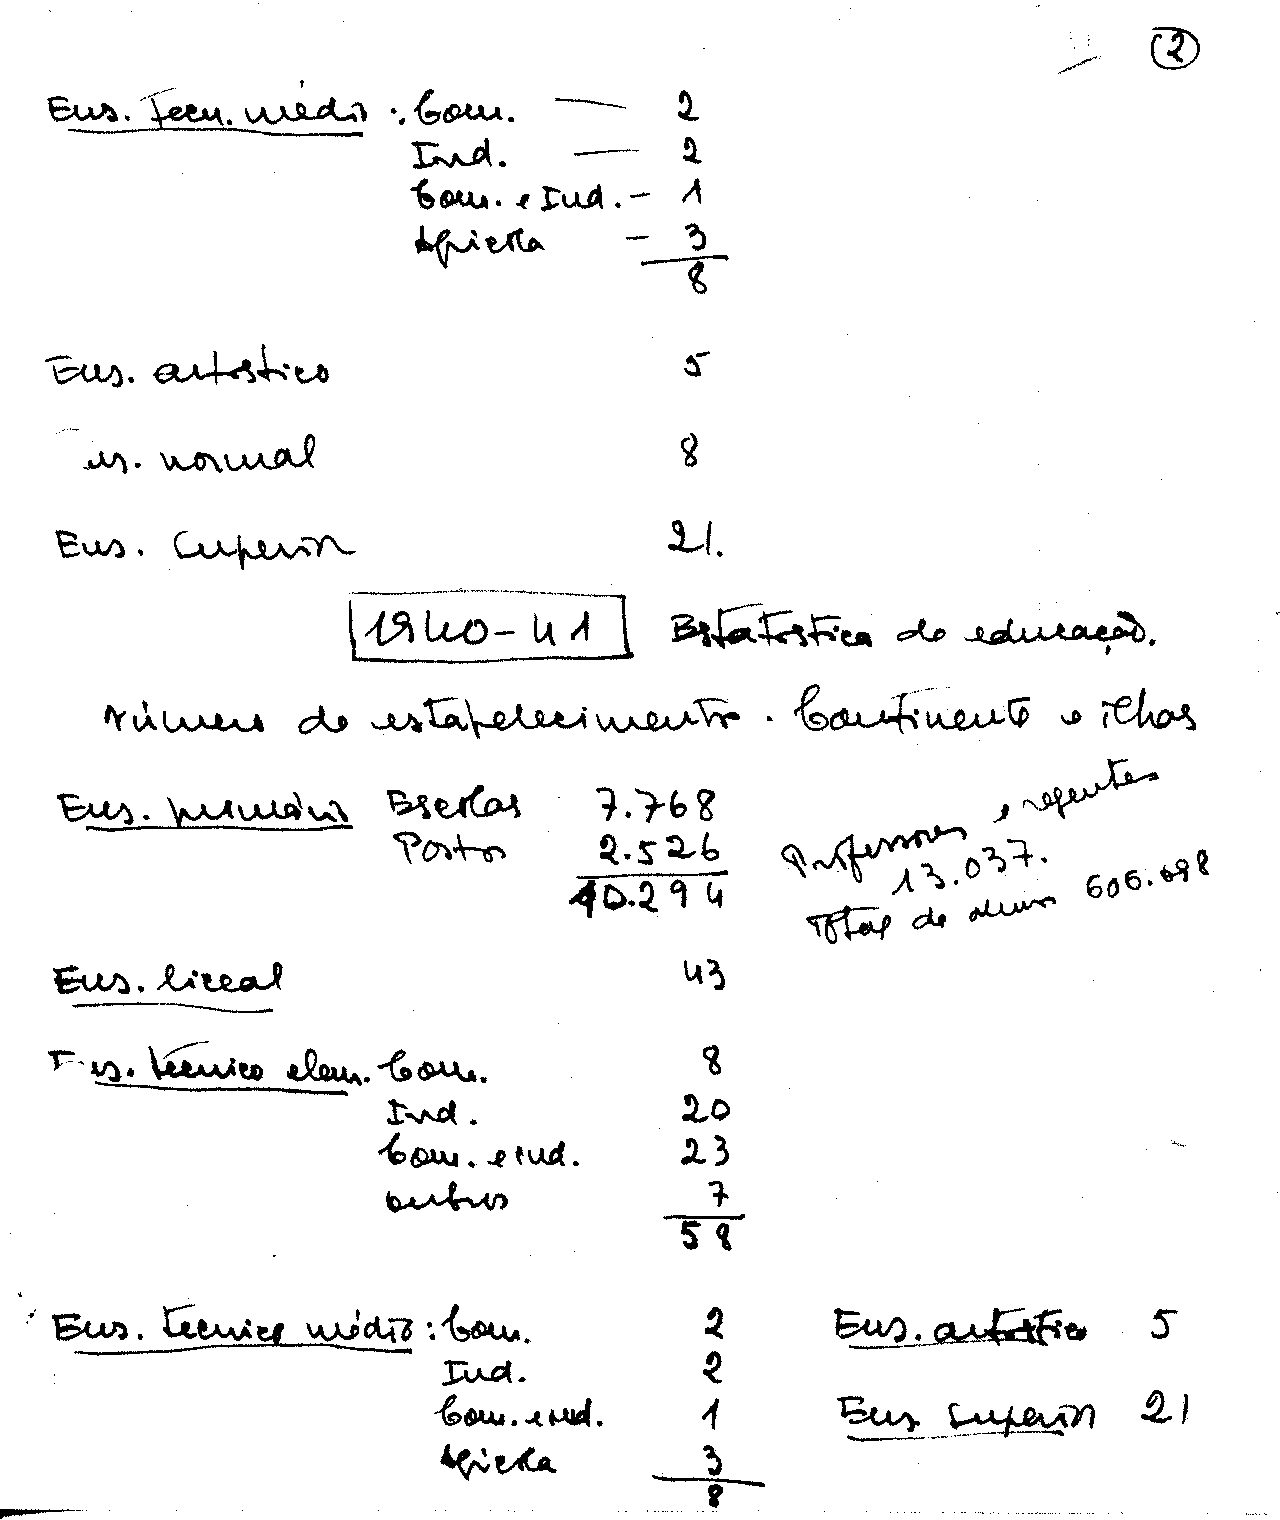 2
Ens. tecn. médio: Com. — 2
Ind. — 2
Com. e Ind. - 1
Agricola - 3
8
Ens. artístico 5
Ens. normal 8
Ens. Superior 21.
1940-41 Estatística da educação.
Número de estabelecimentos. Continente e ilhas
Ens. primário Escolas 7.768
Postos 2.526
10.294
Professores e regentes
13.037.
Total de alunos 606.698
Ens. liceal 43
Ens. técnico elem. Com. 8
Ind. 20
Com. e ind. 23
outros 7
58
Ens. técnico médio: Com. 2
Ind. 2
Com. e ind. 1
Agricola 3
8
Ens. artístico 5
Ens. Superior 21